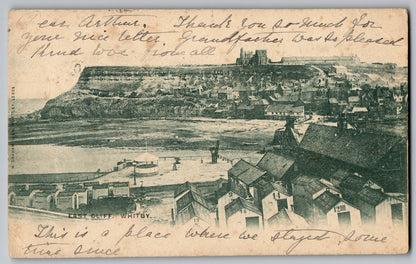 ear Arthur. Thank you so much for
your nice letter. grandfather was so pleased
kind love from all
EAST CLIFF. WHITBY.
This is a place where we stayed some
time since